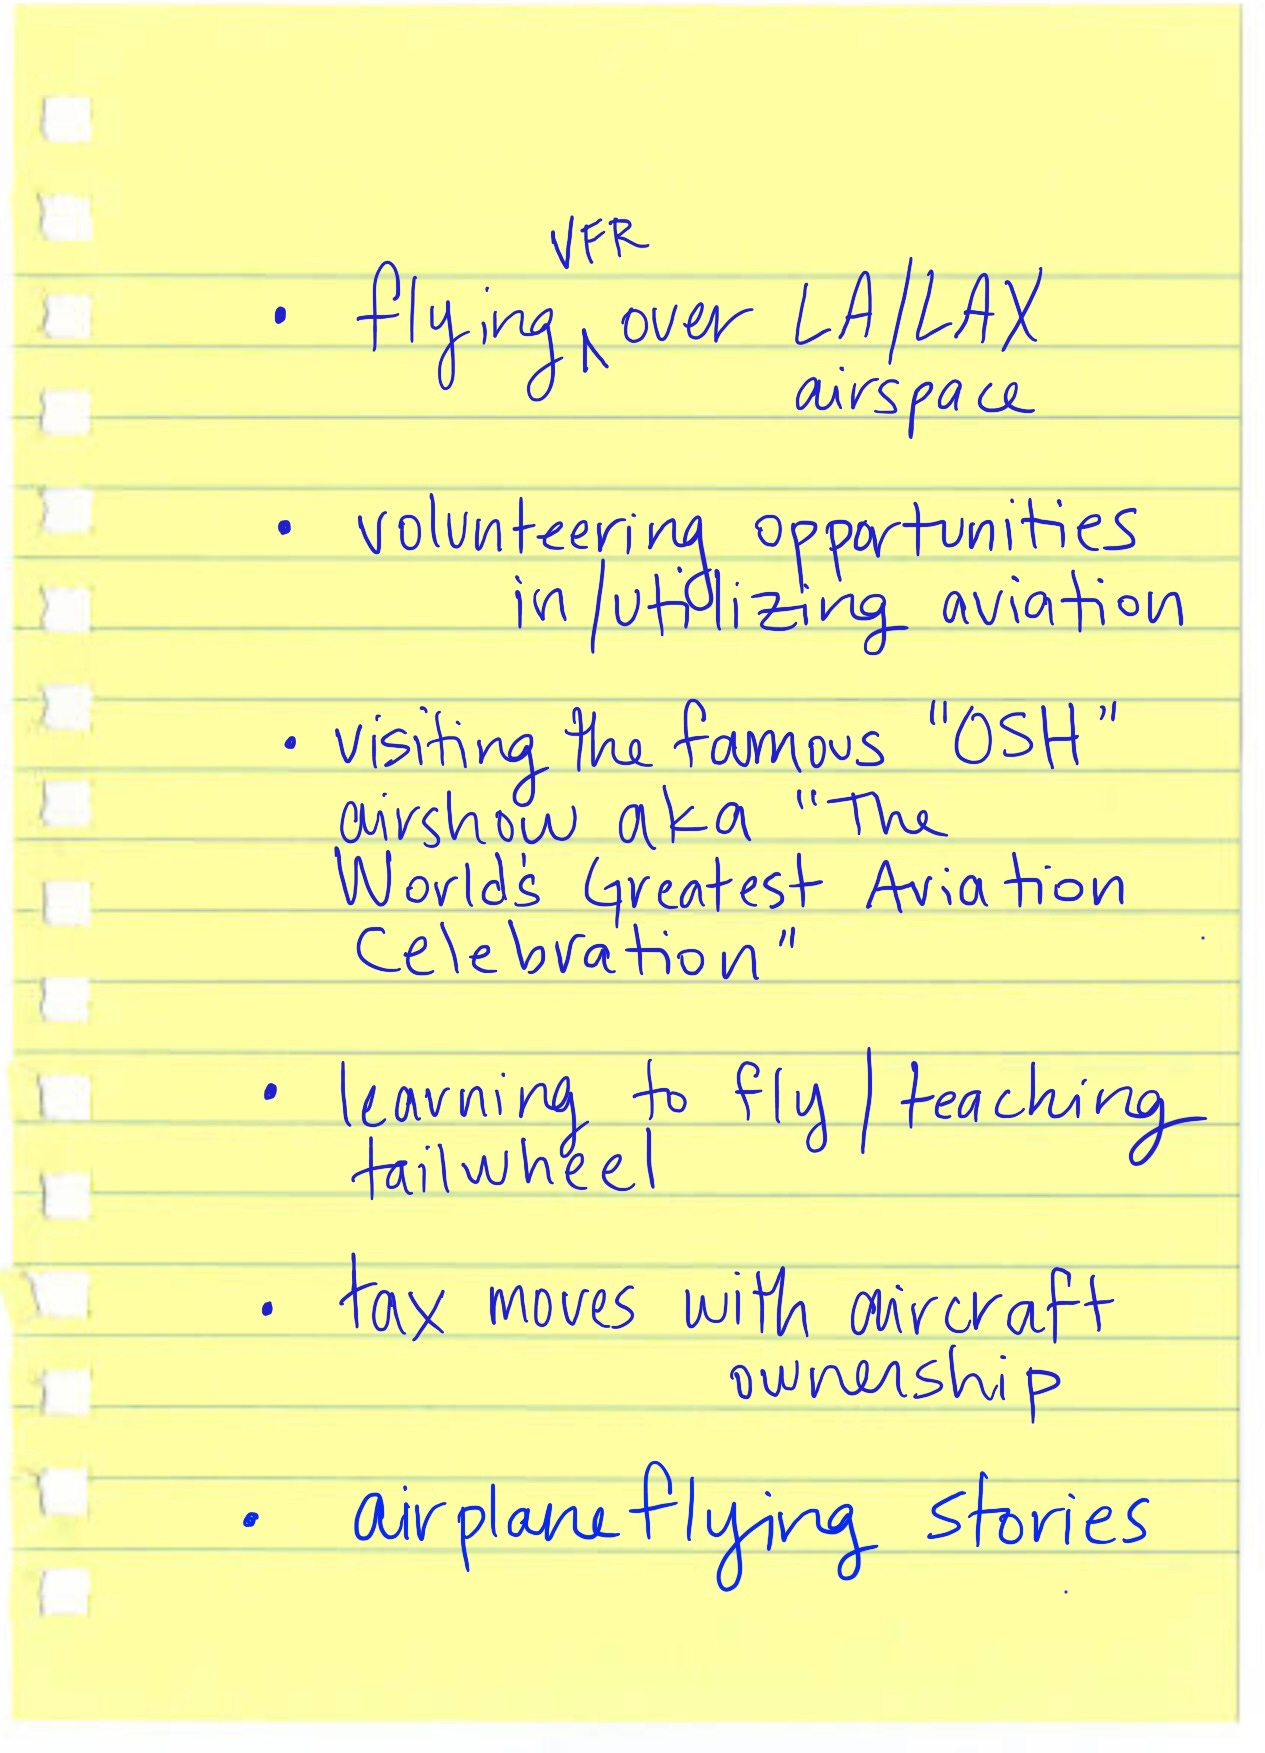 • flying VFR over LA/LAX
airspace
• volunteering opportunities
in/utilizing aviation
• visiting the famous "OSH"
airshow aka "The
World's Greatest Aviation
Celebration"
• learning to fly/teaching
tailwheel
• tax moves with aircraft
ownership
• airplane flying stories